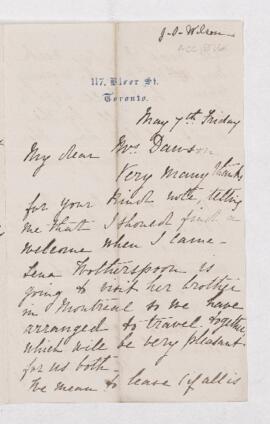 J. S. Wilson
117, Bloor St.
Toronto.
May 7th Friday
My dear Mrs Dawson
Very many thanks
for your kind note, telling
me that I should find a
welcome when I came -
Lena Wotherspoon is
going to visit her brother
in Montreal so we have
arranged to travel together
which will be very pleasant
for us both -
We mean to leave (if all is